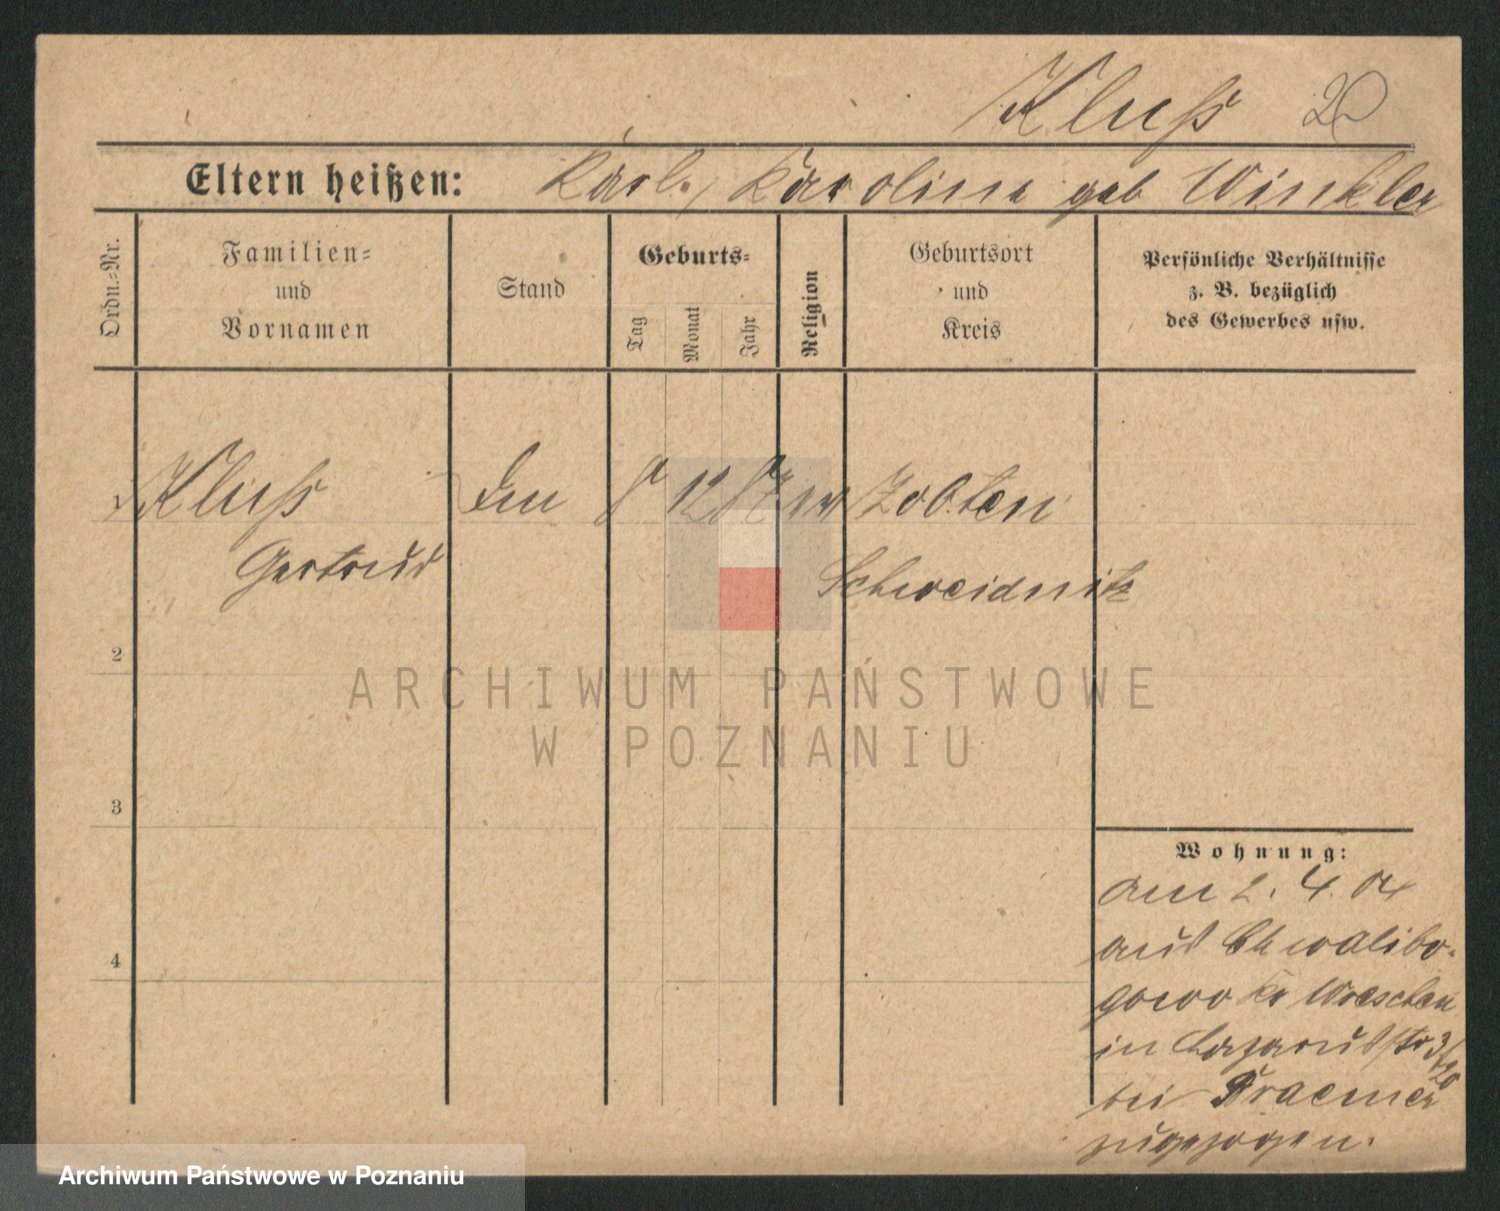 Kluß 20
Eltern heißen: Karl, Karolina geb Winkler
Ordn.-Nr.
Familien-
und
Vornamen
Stand
Geburts-
Tag
Monat
Jahr
Religion
Geburtsort
und
Kreis
Persönliche Verhältnisse
z. B. bezüglich
des Gewerbes usw.
1 Kluß 8 12 87 Zobten
Gertrud Schweidnitz
2
3
4
Wohnung:
am 2. 4. 04
aus Chwalibo-
gowo Kr Wreschen
in Lazarusstr 3/20
bei Kraemer
zugezogen.
ARCHIWUM PAŃSTWOWE
W POZNANIU
Archiwum Państwowe w Poznaniu